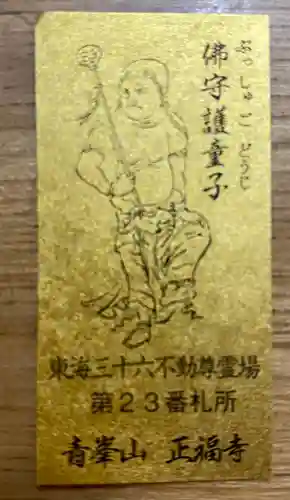 佛守護童子
ぶっしゅごどうじ
東海三十六不動尊霊場
第23番札所
青峯山 正福寺